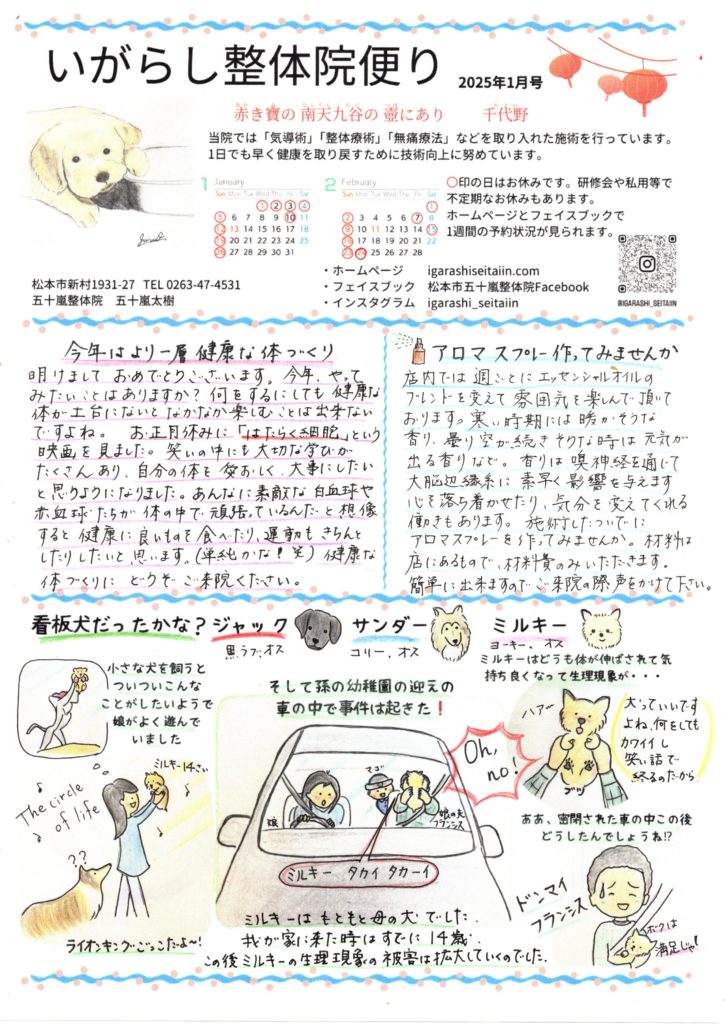 いがらし整体院便り 2025年1月号
赤き寶の南天九谷の壺にあり 千代野
当院では「気導術」「整体療術」「無痛療法」などを取り入れた施術を行っています。
1日でも早く健康を取り戻すために技術向上に努めています。
1 January
Sun Mon Tue Wed Thu Fri Sat
1 2 3 4
5 6 7 8 9 10 11
12 13 14 15 16 17 18
19 20 21 22 23 24 25
26 27 28 29 30 31
2 February
Sun Mon Tue Wed Thu Fri Sat
1
2 3 4 5 6 7 8
9 10 11 12 13 14 15
16 17 18 19 20 21 22
23 24 25 26 27 28
〇印の日はお休みです。研修会や私用等で
不定期なお休みもあります。
ホームページとフェイスブックで
1週間の予約状況が見られます。
松本市新村1931-27 TEL 0263-47-4531
五十嵐整体院 五十嵐太樹
・ホームページ igarashiseitaiin.com
・フェイスブック 松本市五十嵐整体院Facebook
・インスタグラム igarashi_seitaiin
@IGARASHI_SEITAIIN
今年はより一層健康な体づくり
明けまして おめでとうございます。今年、やって
みたいことはありますか？何をするにしても健康な
体が土台にないとなかなか楽しむことは出来ない
ですよね。 お正月休みに「はたらく細胞」という
映画を見ました。笑いの中にも大切な学びが
たくさんあり、自分の体を愛おしく、大事にしたい
と思うようになりました。あんなに素敵な白血球や
赤血球たちが体の中で頑張っているんだと想像
すると健康に良いものを食べたり、運動もきちんと
したりしたいと思います。(単純かな！笑) 健康な
体づくりに どうぞご来院ください。
アロマスプレー作ってみませんか
店内では週ごとにエッセンシャルオイルの
ブレンドを変えて雰囲気を楽しんで頂いて
おります。寒い時期には暖かそうな
香り、曇り空が続きそうな時は元気が
出る香りなど。香りは嗅神経を通じて
大脳辺縁系に素早く影響を与えます
心を落ち着かせたり、気分を変えてくれる
働きもあります。施術したついでに
アロマスプレーを作ってみませんか。材料は
店にあるもので、材料費のみいただきます。
簡単に出来ますのでご来院の際声をかけて下さい。
看板犬だったかな？ジャック サンダー ミルキー
黒ラブ、オス コリー、オス ヨーキー、オス
小さな犬を飼うと
ついついこんな
ことがしたいようで
娘がよく遊んで
いました
ミルキー14さい
The circle
of life
??
ライオンキングごっこだよ〜!
そして孫の幼稚園の迎えの
車の中で事件は起きた！
娘
マゴ
娘の夫
フランシス
ミルキー タカイ タカーイ
Oh,
no!
ミルキーはもともと母の犬でした。
我が家に来た時はすでに14歳。
この後ミルキーの生理現象の被害は拡大していくのでした。
ミルキーはどうも体が伸ばされて気
持ち良くなって生理現象が・・・
ハァ〜
プツ
犬っていいです
よね。何をしても
カワイイし
笑い話で
終るのだから
ああ、密閉された車の中この後
どうしたんでしょうね!?
ドンマイ
フランシス
ボクは
満足じゃ!